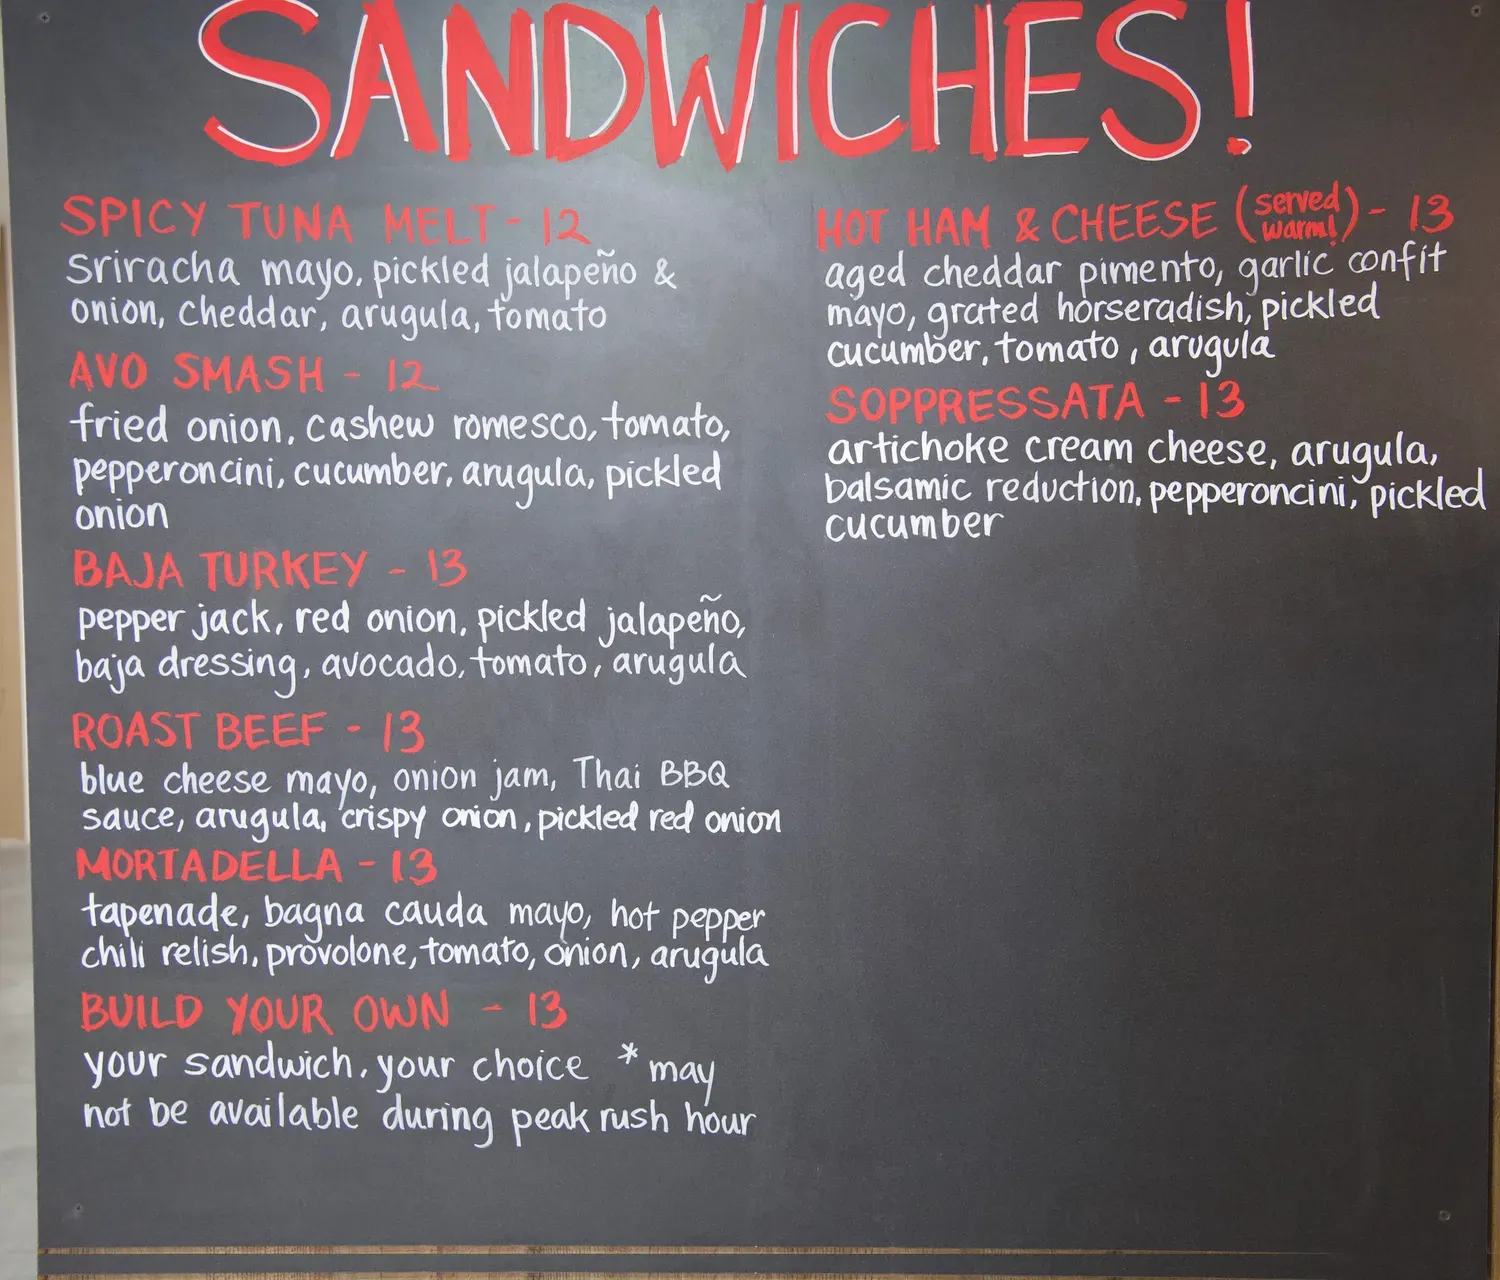 SANDWICHES!
SPICY TUNA MELT - 12
Sriracha mayo, pickled jalapeño &
onion, cheddar, arugula, tomato
AVO SMASH - 12
fried onion, cashew romesco, tomato,
pepperoncini, cucumber, arugula, pickled
onion
BAJA TURKEY - 13
pepper jack, red onion, pickled jalapeño,
baja dressing, avocado, tomato, arugula
ROAST BEEF - 13
blue cheese mayo, onion jam, Thai BBQ
sauce, arugula, crispy onion, pickled red onion
MORTADELLA - 13
tapenade, bagna cauda mayo, hot pepper
chili relish, provolone, tomato, onion, arugula
BUILD YOUR OWN - 13
your sandwich, your choice *may
not be available during peak rush hour
HOT HAM & CHEESE (served warm!) - 13
aged cheddar pimento, garlic confit
mayo, grated horseradish, pickled
cucumber, tomato, arugula
SOPPRESSATA - 13
artichoke cream cheese, arugula,
balsamic reduction, pepperoncini, pickled
cucumber